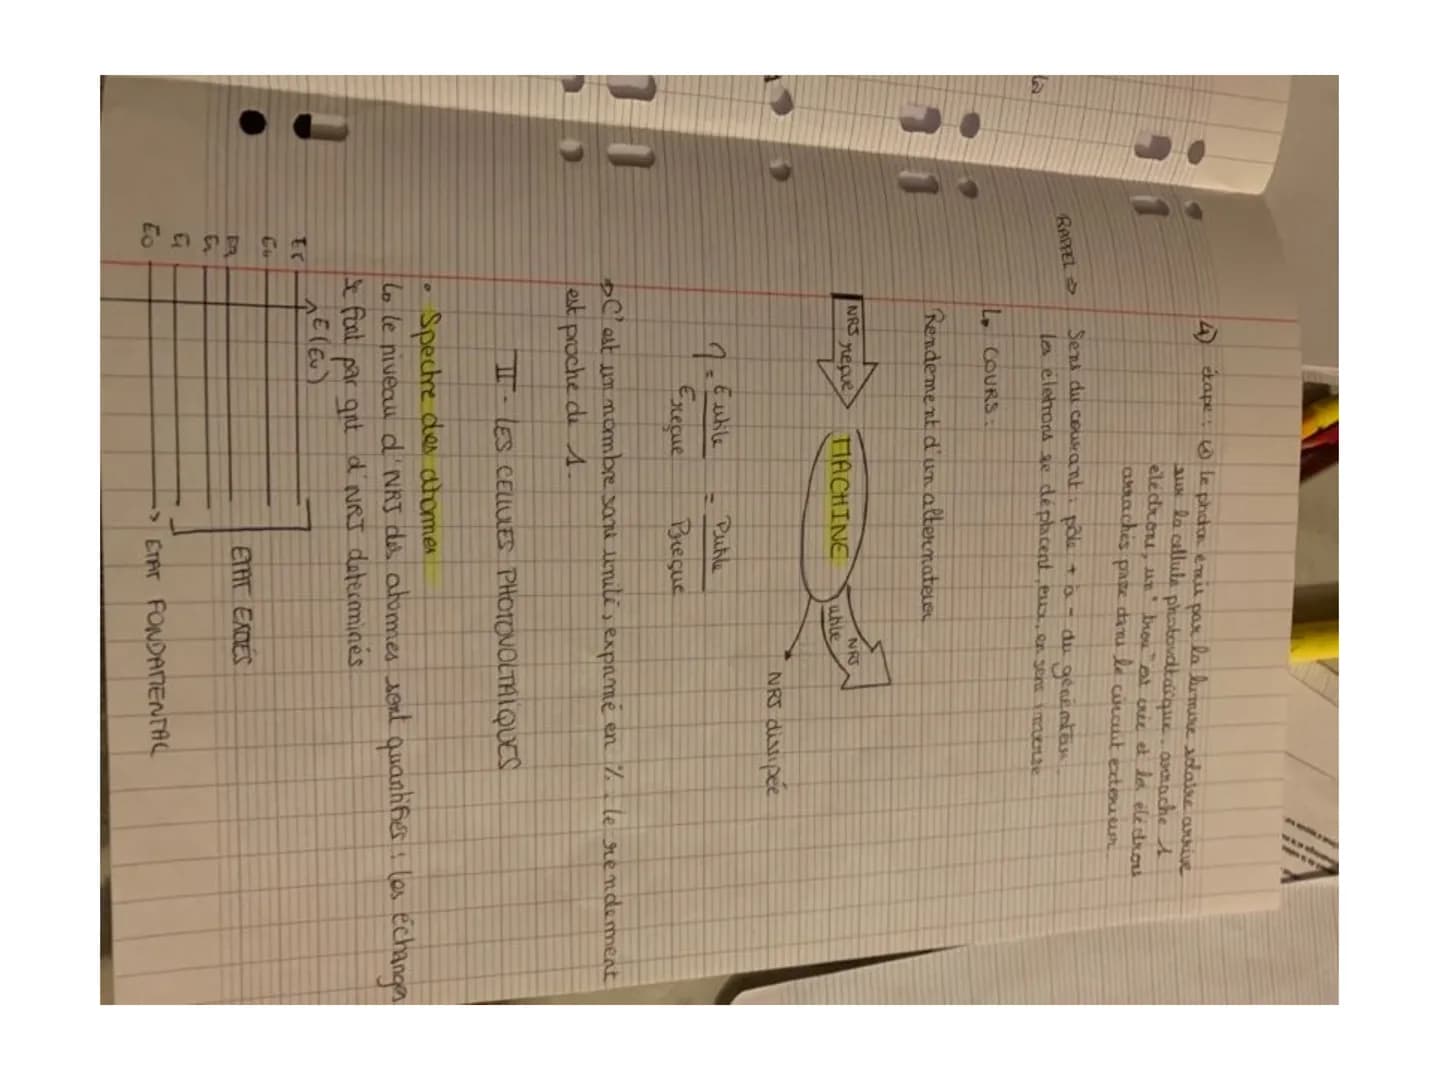 4) étape : le photon émis par la lumière solaire arrive
sur la cellule photovoltaïque. arrache 1
électrons, un "trou" est crée et les électrons
arrachés passe dans le circuit extérieur
RAPPEL => Sens du courant : pôle + à - du générateur.
les életrons se déplacent, eux, en sens inverse
↳ COURS :
Rendement d'un alternateur
NRJ reçue
MACHINE
NRJ
utile
NRJ dissipée
η = E utile / E reçue = P utile / P reçue
=> C'est un nombre sans unité, exprimé en %. le rendement
est proche de 1.
II - LES CELLULES PHOTOVOLTAÏQUES
• Spectre des atomes
↳ le niveau d'NRJ des atomes sont quantifiés : les échanges
se font par qnt d'NRJ déterminés.
E (eV)
E5
E4
E3
E2
E1
ETAT EXCITÉS
E0 → ETAT FONDAMENTAL